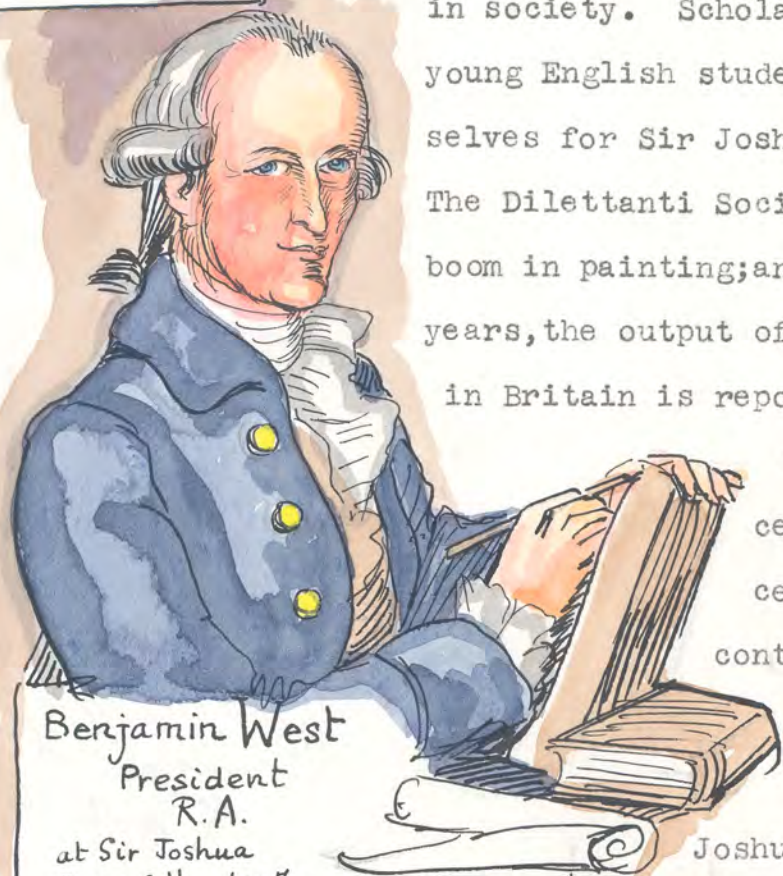 in society. Schola
young English stude
selves for Sir Josh
The Dilettanti Soci
boom in painting;an
years,the output of
in Britain is repo
ce
ce
cont
Benjamin West
President
R.A.
at Sir Joshua
Joshu